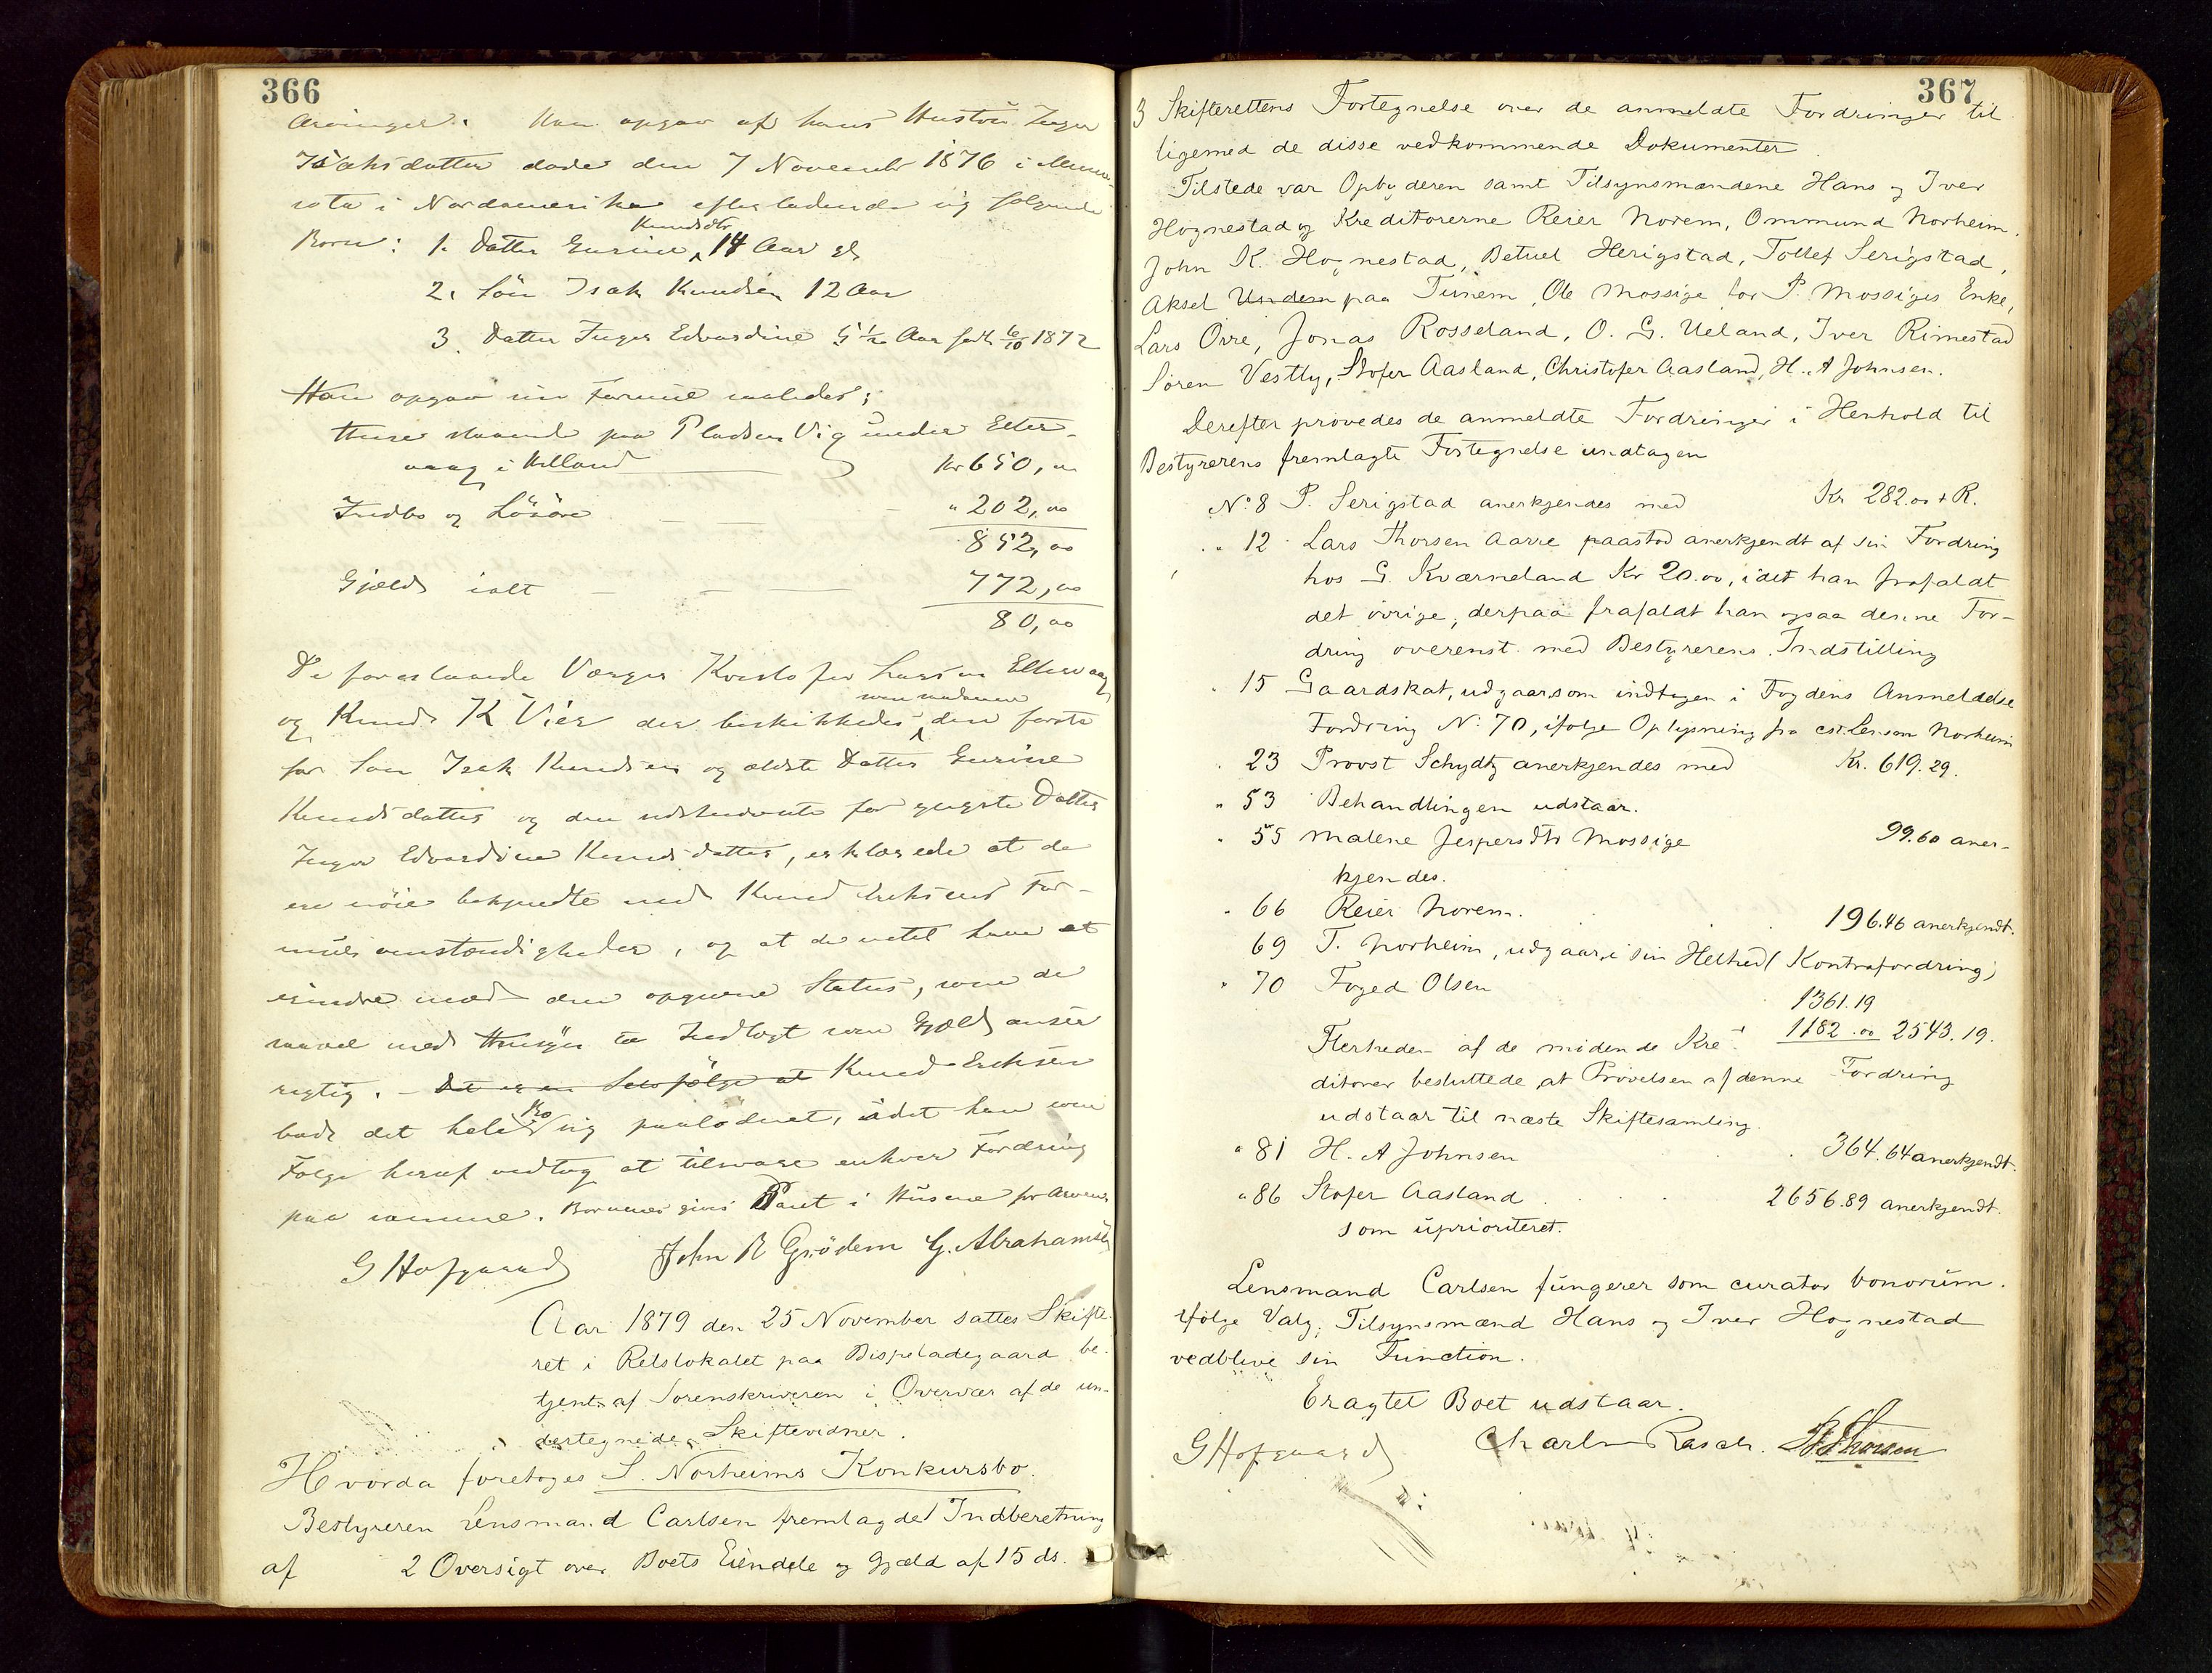 366
Arvinger. Han opgav at hans Hustru Inger
Isaksdatter døde den 7 November 1876 i Minne-
sota i Nordamerika efterladende sig følgende
Knudsdtr
Børn: 1. Datter Gurine 14 Aar gl
2. Søn Isak Knudsen 12 Aar
3. Datter Inger Edvardine 5 1/2 Aar født 6/10 1872
Han opgav sin Formue saaledes:
Huse staaende paa Pladsen Vig under Elter-
vaag i Killand Kr 650,00
Indbo og Løsøre " 202,00
852,00
Gjæld ialt 772,00
80,00
De foreslaaede Værger Kristofer Larsen Eltervaag
og Knud K Vier der beskikkedes, den første
for Søn Isak Knudsen og ældste Datter Gurine
Knudsdatter og den sidstnævnte for yngste Datter
Inger Edvardine Knudsdatter, erklærede at de
ere nøie bekjendte med Knud Eriksens For-
muesomstændigheder, og at de intet have at
erindre mod den opgivne Status, som de
saavel med Hensyn til Indtægt som Gjæld anser
rigtig. - Det er en Selvfølge at Knud Eriksen
bad det hele Bo sig paalødnet, idet han som
Følge heraf vedtog at tilsvare enhver Fordring
paa samme. Børnene gives Pant i Husene for Arven
G Hofgaard John R Grødem G. Abrahamsen
Aar 1879 den 25 November sattes Skifte-
ret i Retslokalet paa Bispeladegaard be-
tjent af Sorenskriveren i Overvær af de un-
dertegnede Skiftevidner.
Hvorda foretoges S. Norheims Konkursbo.
Bestyreren Lensmand Carlsen fremlagde 1 Indberetning
af 2 Oversigt over Boets Eiendele og Gjæld af 15 ds.
367
3 Skifterettens Fortegnelse over de anmeldte Fordringer til
ligemed de disse vedkommende Dokumenter
Tilstede var Opbyderen samt Tilsynsmændene Hans og Iver
Hognestad og Kreditorerne Reier Norem, Ommund Norheim,
John K. Hognestad, Betuel Herigstad, Tollef Serigstad,
Aksel Undem paa Tunem, Ole Mossige for P. Mossiges Enke,
Lars Orre, Jonas Rosseland, O. G. Ueland, Iver Rimestad
Søren Vestly, Stofer Aasland, Christofer Aasland, H. A Johnsen.
Derefter prøvedes de anmeldte Fordringer i Henhold til
Bestyrerens fremlagte Fortegnelse undtagen
No 8 P. Serigstad anerkjendes med Kr 282.00 + R.
" 12 Lars Thorsen Aarre paastod anerkjendt af sin Fordring
hos G. Kværneland Kr 20.00, idet han frafaldt
det øvrige, derpaa frafaldt han ogsaa denne For-
dring overenst. med Bestyrerens Indstilling
" 15 Gaardskat, udgaar som indtagen i Fogdens Anmeldelse
Fordring No 70, ifølge Oplysning fra Lensm Norheim
" 23 Provst Schydtz anerkjendes med Kr. 619.29.
" 53 Behandlingen udstaar.
" 55 Malene Jespersdtr Mossige 99.60 aner-
kjendes.
" 66 Reier Norem. 196.46 anerkjendt.
69 T. Norheim, udgaar i sin Helhed (Kontrafordring)
" 70 Foged Olsen
1361.19
1182.00 2543.19.
Flerheden af de mødende Kre-
ditorer besluttede at Prøvelsen af denne Fordring
udstaar til næste Skiftesamling.
" 81 H. A Johnsen 364.64 anerkjendt.
" 86 Stofer Aasland 2656.89 anerkjendt.
som uprioriteret.
Lensmand Carlsen fungerer som curator bonorum.
Ifølge Valg, Tilsynsmænd Hans og Iver Hognestad
vedblive sin Function.
Eragtet Boet udstaar.
G Hofgaard Charles Rasch. Thorsen